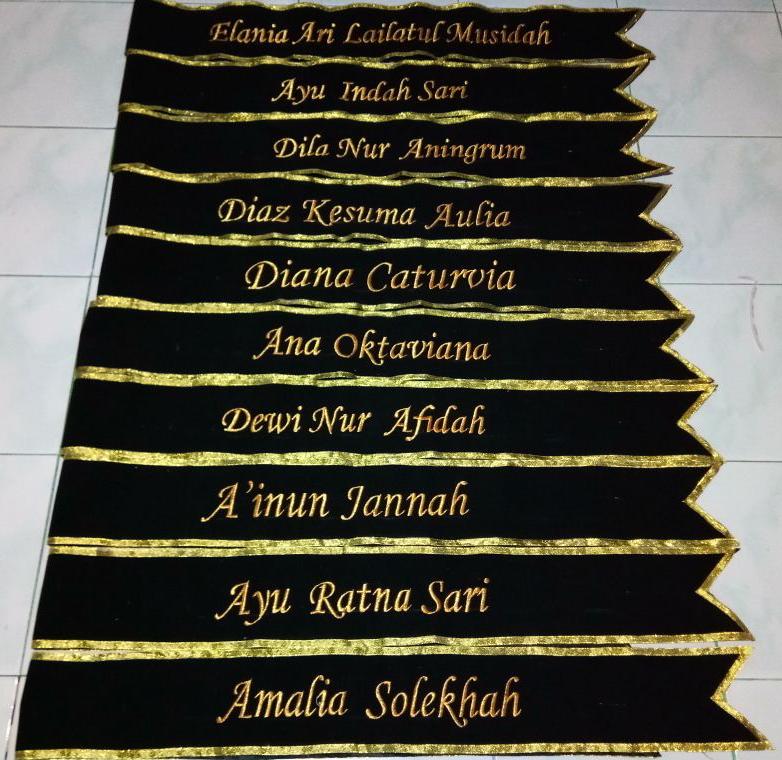 Elania Ari Lailatul Musidah
Ayu Indah Sari
Dila Nur Aningrum
Diaz Kesuma Aulia
Diana Caturvia
Ana Oktaviana
Dewi Nur Afidah
A'inun Jannah
Ayu Ratna Sari
Amalia Solekhah